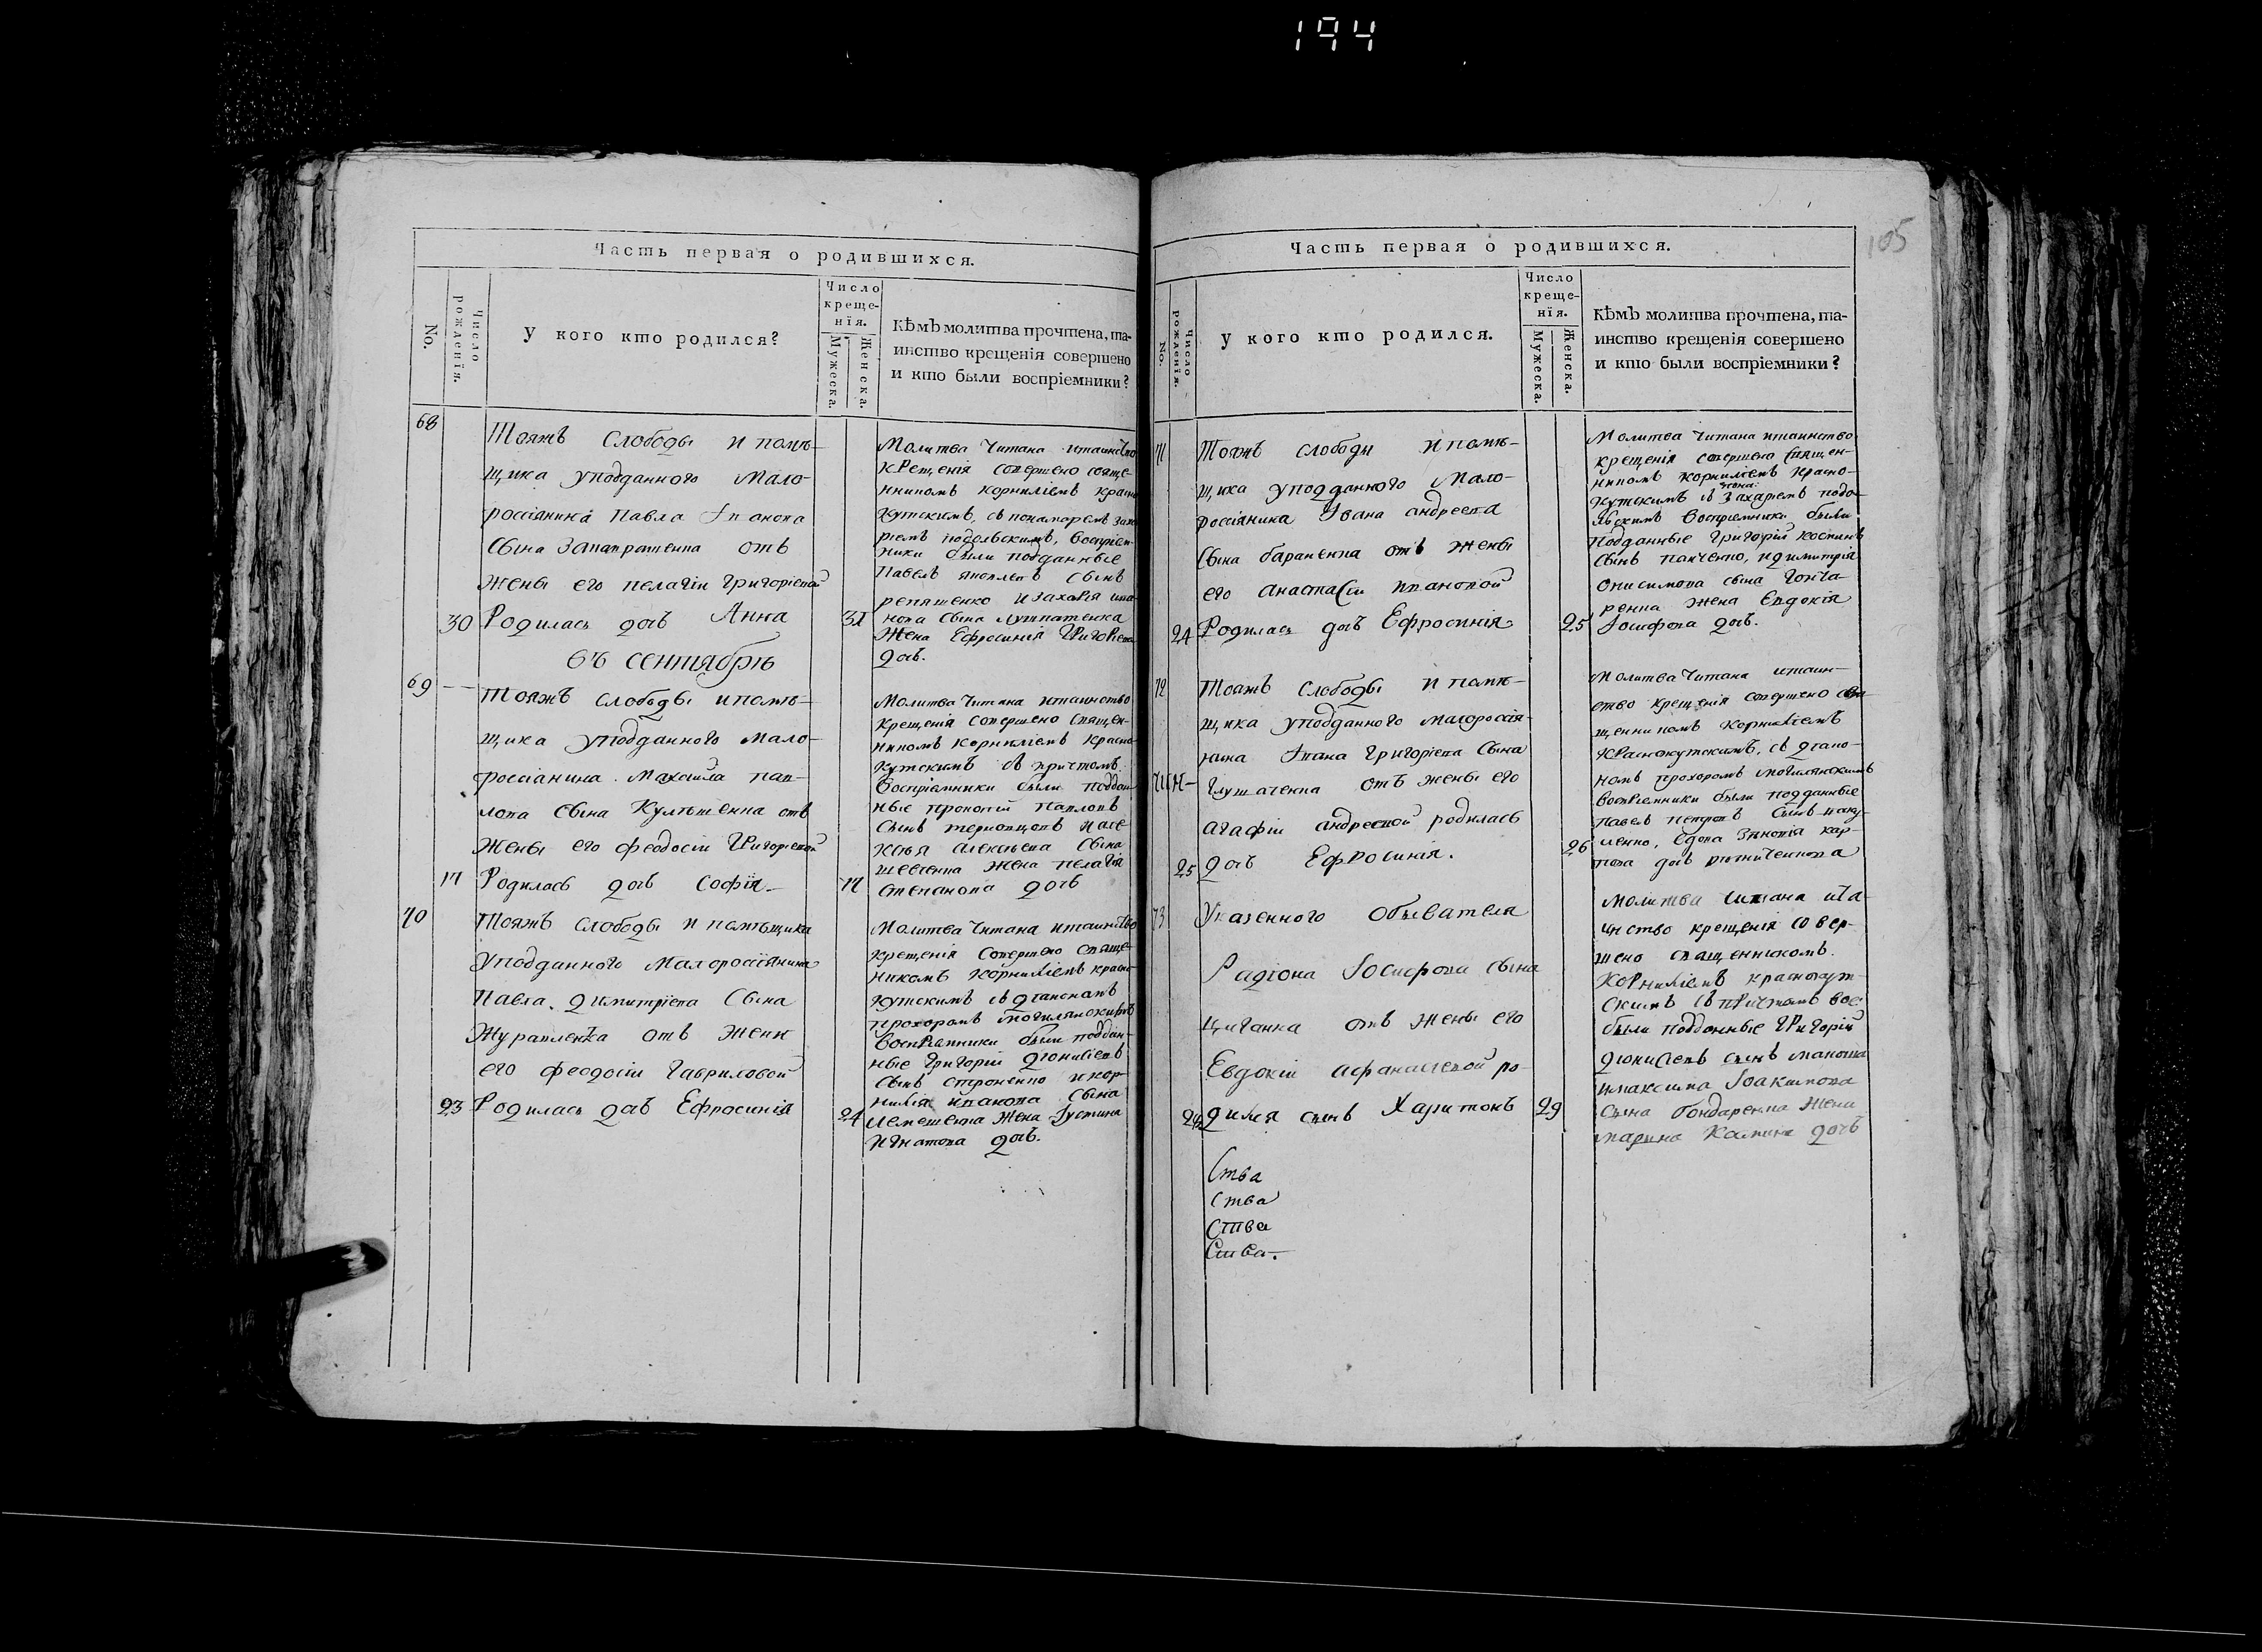 194
105
Часть первая о родившихся.
No.
Число рожденїя.
У кого кто родился?
Число
креще-
нїя.
Мужеска.
Женска.
Кѣмъ молитва прочтена, та-
инство крещенїя совершено
и кто были воспрїемники?
68
Тояжъ слободы и помѣ-
щика уподданного мало-
россіянина Павла Іванова
Сына отъ
жены его пелагіи григоріевой
30 Родилась дочь Анна 31
Молитва читана итаинство
крещенія совершено свяще-
нникомъ корниліемъ красно
кутскимъ, съ понамаремъ заха
ріемъ подольскимъ, воспріем-
ники были подданные
Павелъ яковлевъ сынъ
репяшенко изахарія ива-
нова сына
жена Ефросинія Григориева
дочь.
въ сентябрѣ
69
тояжъ слободы ипомѣ-
щика уподданного мало-
россіанина максима пав-
лова сына отъ
жены его феодосіи григориевой
17 Родилась дочь софїя 17
Молитва читана итаинство
крещенія совершено священ-
никомъ корниліемъ красно-
кутскимъ съ причтомъ
воспріемники были поддан
ные прокопій павловъ
сынъ
алексѣева сына
шевченка жена пелагія
степанова дочь
70
Тояжъ слободы и помѣщика
уподданного малоросіїянина
Павла димитріева сына
Журавленка отъ жени
его феодосіи гавриловой
23 Родилась дочь Ефросинія 24
Молитва читана итаинство
крещенія совершено свяще-
никомъ корниліемъ красно-
кутскимъ съ діакономъ
прохоромъ могилянскимъ
воспріемники были поддан-
ные григорій діонисіевъ
сынъ икор-
нилія иванова сына
жена Іустина
игнатова дочь.
Часть первая о родившихся.
No.
Число рожденїя.
У кого кто родился.
Число
креще-
нїя.
Мужеска.
Женска.
Кѣмъ молитва прочтена, та-
инство крещенія совершено
и кто были воспріемники?
71
Тояжъ слободы ипомѣ-
щика уподданного мало-
россіянина Ивана андреева
сына бараненка отъ жены
его анастасіи ивановой
24 Родилась дочь Ефросинія 25
Молитва читана итаинство
крещенія совершено священ-
никомъ корниліемъ красно-
кутскимъ съ захаріемъ подо-
льскимъ воспріемники были
подданные григорій
сынъ панченко, идимитрія
онисимова сына гонча-
ренка жена Евдокія
Іосифова дочь.
72
Тояжъ слободы и помѣ-
щика уподданного малороссія-
нина Івана григоріева сына
глущаченка отъ жены его
агафіи андреевой родилась
25 дочь Ефросинія. 26
Молитва читана итаин-
ство крещенія совершено свя-
щенникомъ корниліемъ
краснокутскимъ, съ діако-
номъ прохоромъ могилянскимъ
воспріемники были подданные
павелъ петровъ сынъ
вдова зиновія кар-
пова дочь
73
Указенного обывателя
Радіона Іосифова сына
циганка отъ жены его
Евдокіи афанасіевой ро-
дился сынъ Харитонъ 29
молитва читана ита-
инство крещенія совер-
шено священникомъ
корниліемъ краснокут-
скимъ съ причтомъ вос:
были подданные григорій
діонисіевъ сынъ
имаксима Іоакимова
сына бондаренка жена
марина дочь
Ства
Ства
Ства
Ства.